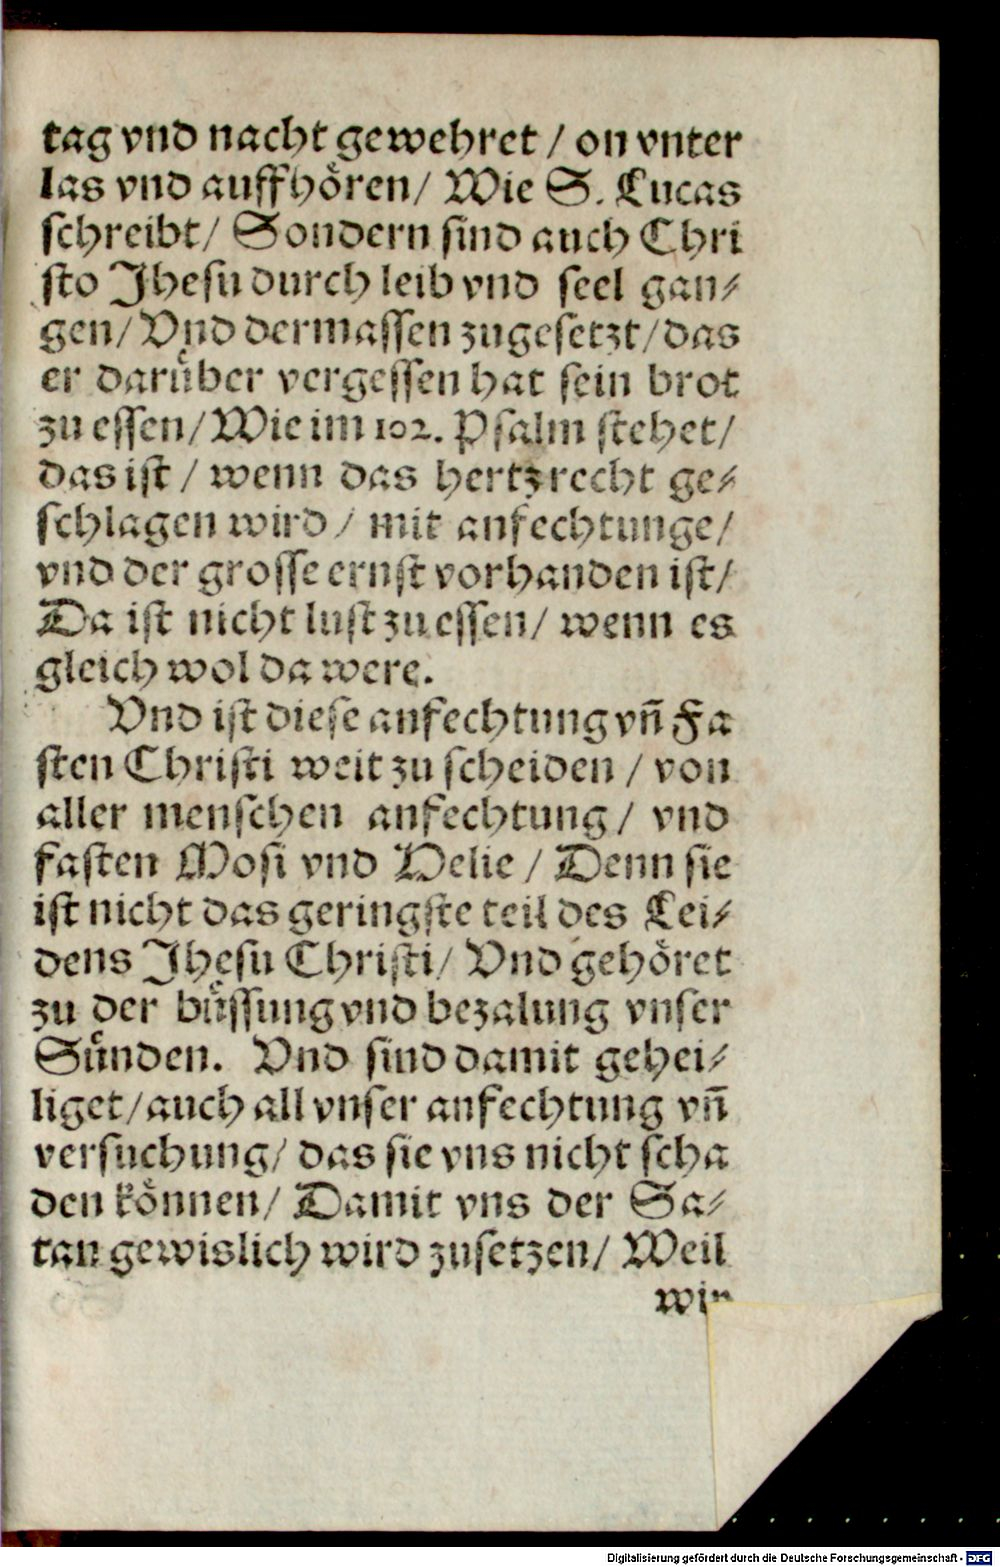 tag vnd nacht gewehret / on vnter
las vnd auffhoͤren / Wie S. Lucas
schreibt / Sondern sind auch Chri
sto Jhesu durch leib vnd seel gan⸗
gen / Vnd dermassen zugesetzt / das
er daruͤber vergessen hat sein brot
zu essen / Wie im 102. Psalm stehet /
das ist / wenn das hertz recht ge⸗
schlagen wird / mit anfechtunge /
vnd der grosse ernst vorhanden ist /
Da ist nicht lust zu essen / wenn es
gleich wol da were.
Vnd ist diese anfechtung vn̄ Fa
sten Christi weit zu scheiden / von
aller menschen anfechtung / vnd
fasten Mosi vnd Helie / Denn sie
ist nicht das geringste teil des Lei⸗
dens Jhesu Christi / Vnd gehoͤret
zu der buͤssung vnd bezalung vnser
Suͤnden. Vnd sind damit gehei⸗
liget / auch all vnser anfechtung vn̄
versuchung / das sie vns nicht scha
den koͤnnen / Damit vns der Sa⸗
tan gewislich wird zusetzen / Weil
wir
Digitalisierung gefördert durch die Deutsche Forschungsgemeinschaft - DFG